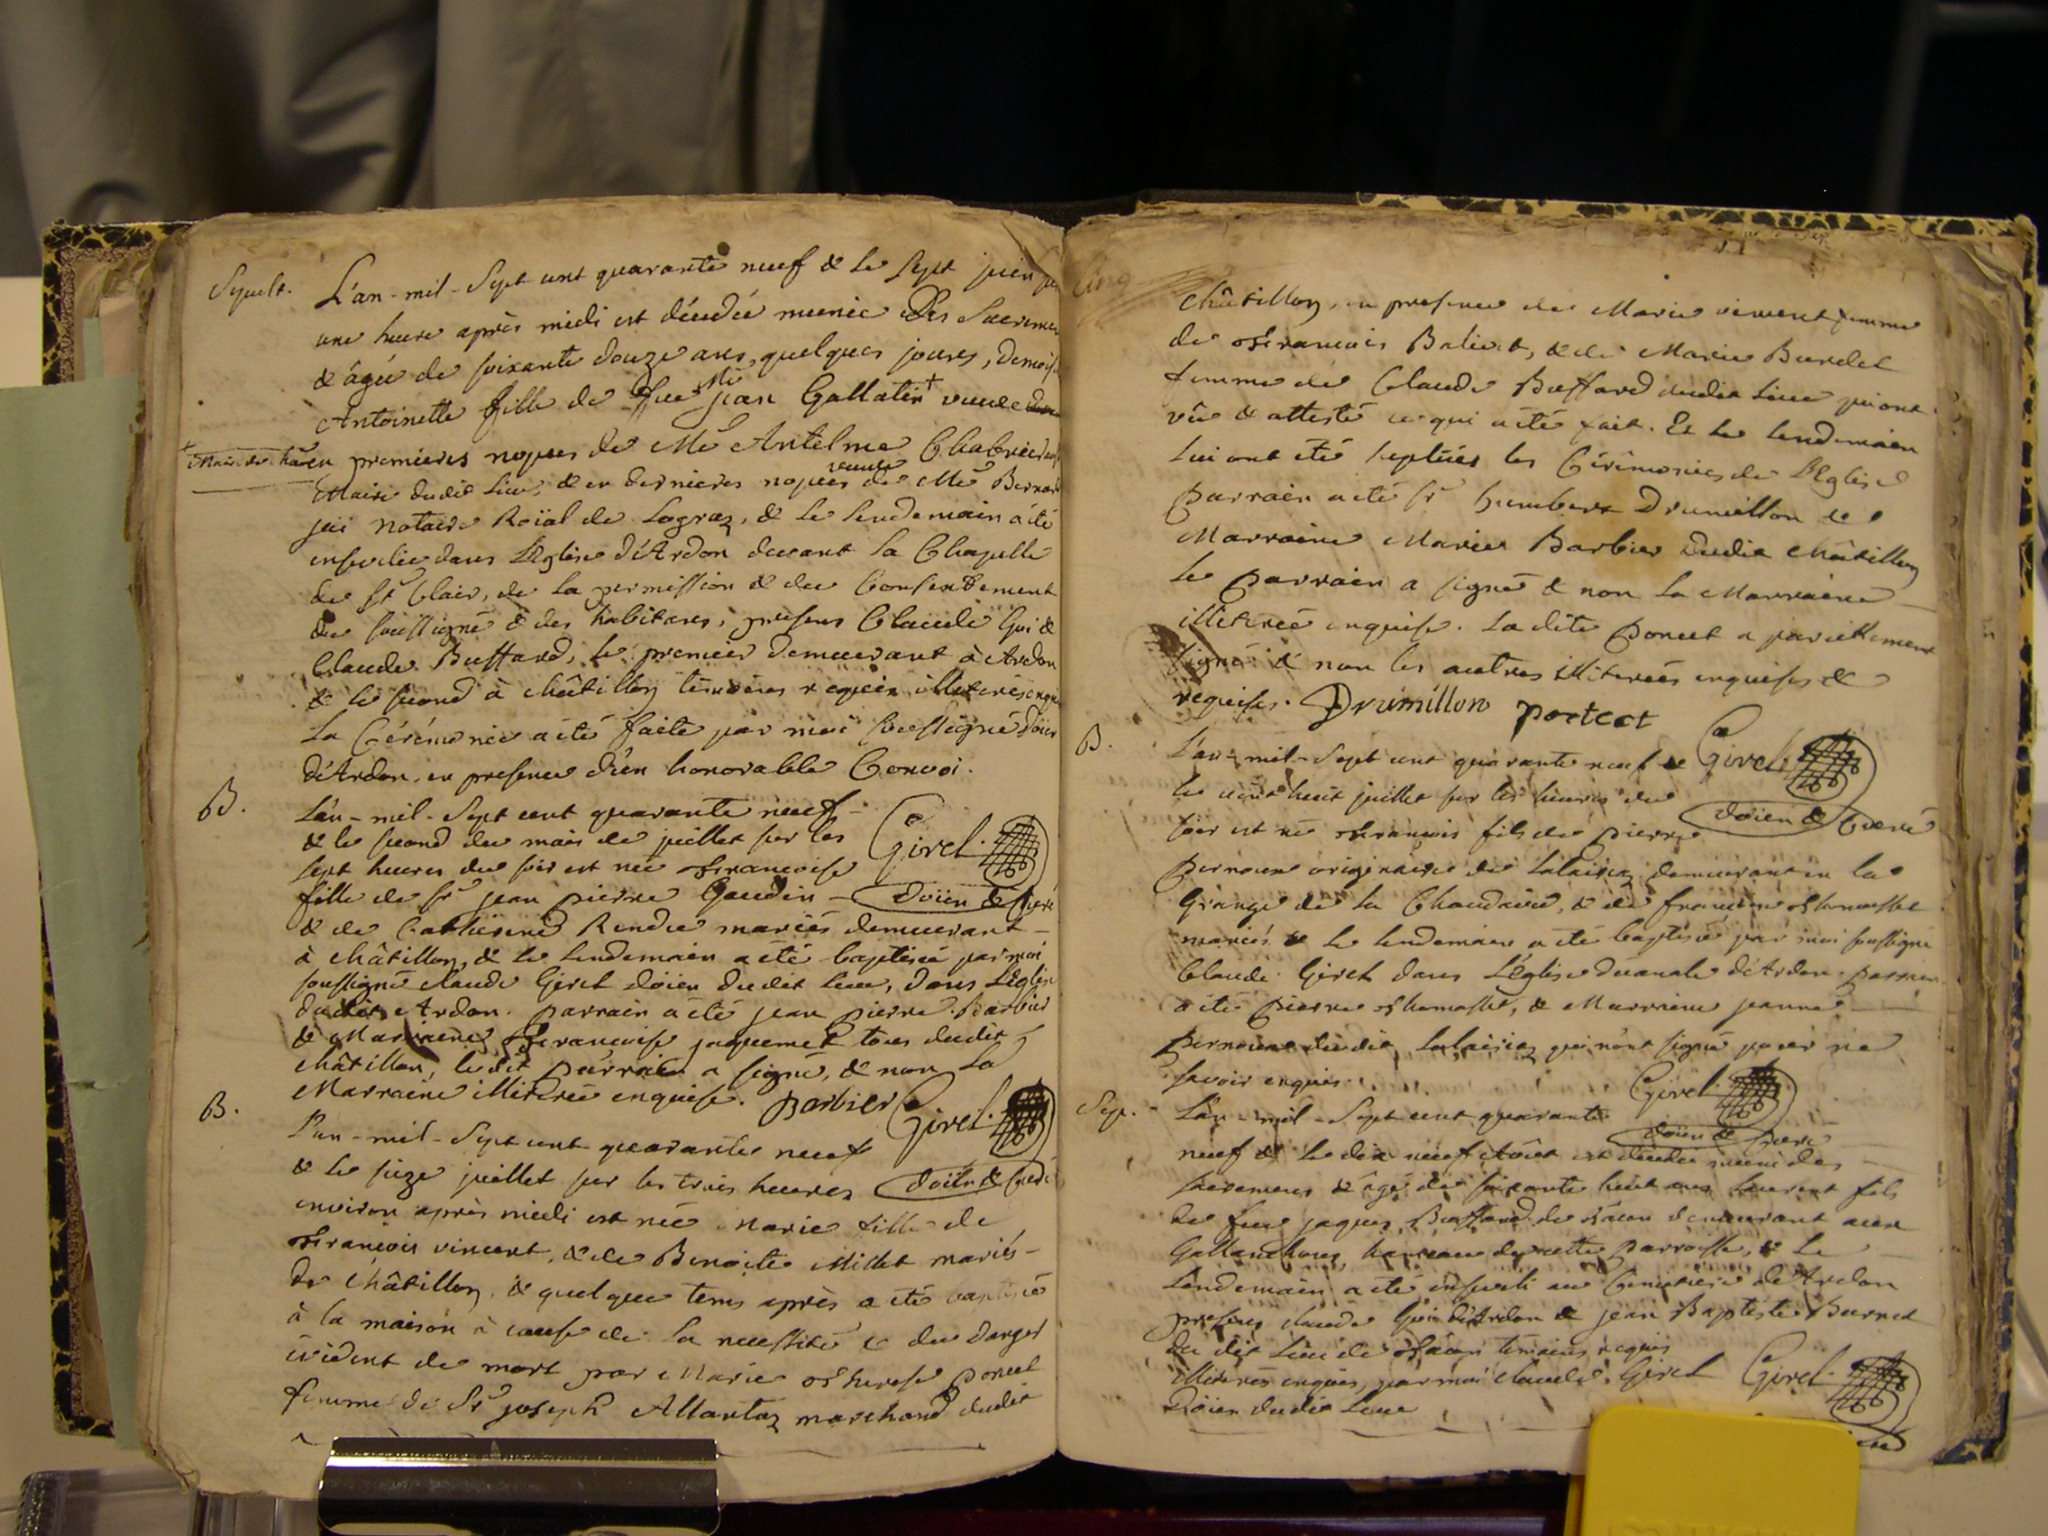 Sepult. L'an-mil-Sept cent quarante neuf & le Sept juin
une heure après midi est décédée munie des Sacremen
& âgée de soixante douze ans, quelques jours, Demois
Antoinette fille de feu Me jean Gallatin + veuve
+ Maire de
en premieres nopces de Me Antelme Chabrier
Maire dudit lieu, & en dernieres nopces veuve de Me Bernard
notaire Roïal de Lograz, & le lendemain a été
ensevelie dans l'Eglise d'Ardon devant la Chapelle
de St Clair, de la permission & du Consentement
du soussigné & des habitans, presens Claude Gui &
Claude Buffard, le premier demeurant à Ardon
& le second à Châtillon témoins requis illiterés enquis
La Cérémonie a été faite par moi soussigné Doïen
d'Ardon, en presence d'un honorable Convoi.
Girel. Doïen & Curé
B. L'an-mil-Sept cent quarante neuf-
& le second du mois de juillet sur les
sept heures du soir est née Françoise
fille de Sr jean pierre Gaudin
& de Catherine Rendu mariés demeurant-
à Châtillon, & le lendemain a été baptisée par moi
soussigné claude Girel Doïen dudit lieu, dans L'Eglise
dudit Ardon. parrain a été jean pierre Barbier
& Marraine Françoise jaquemet tous dudit
Châtillon, ledit parrain a signé, & non la
Marraine illiterée enquise. Barbier Girel.
Doïen & Curé
B. L'an-mil-Sept cent quarante neuf
& le seize juillet sur les trois heures
environ après midi est née Marie fille de
François vincent, & de Benoite Millet mariés-
de Châtillon, & quelque tems après a été baptisée
à la maison à cause de la necessité & du danger
évident de mort par Marie Therese poncet
femme de Sr joseph Allantaz marchand dudit
Châtillon, en presence de Marie vincent femme
de François Balivet, & de Marie Burdet
femme de Claude Buffard dudit lieu qui ont
vû & attesté ce qui a été fait. Et le lendemain
lui ont été suplées les Cérémonies de L'Eglise
parrain a été Sr humbert Drumillon &
Marraine Marie Barbier dudit Châtillon
le parrain a signé & non la Marraine
illiterée enquise. La dite poncet a pareillement
signé & non les autres illiterées enquises &
requises. Drumillon poncet
Girel. Doïen & Curé
B. L'an-mil-Sept cent quarante neuf &
le vint huit juillet sur les heures du
soir est né François fils de pierre
pernoux originaire de Lalairiaz demeurant en la
Grange de la Chaudarie, & de françoise Thomasset
mariés & le lendemain a été baptisé par moi soussigné
Claude Girel dans L'Eglise decanale d'Ardon. parrain
a été pierre Thomasset, & Marraine jeanne
pernoux dudit Lalairiaz qui n'ont signé pour ne
savoir enquis. Girel.
Doïen & Curé
Sep. L'an-mil-Sept cent quarante
neuf & le dix neuf Aôut est décédé muni des
sacremens & âgé de soixante huit ans Laurent fils
de feu jaques Buffard de demeurant aux
Gallanchons, hameau de cette parroisse, & le
lendemain a été enseveli au Cimetiere de Ardon
presens claude Gui d'Ardon & jean Baptiste Burnet
du dit lieu de témoins requis
illiterés enquis, par moi claude Girel
Doïen dudit lieu Girel.